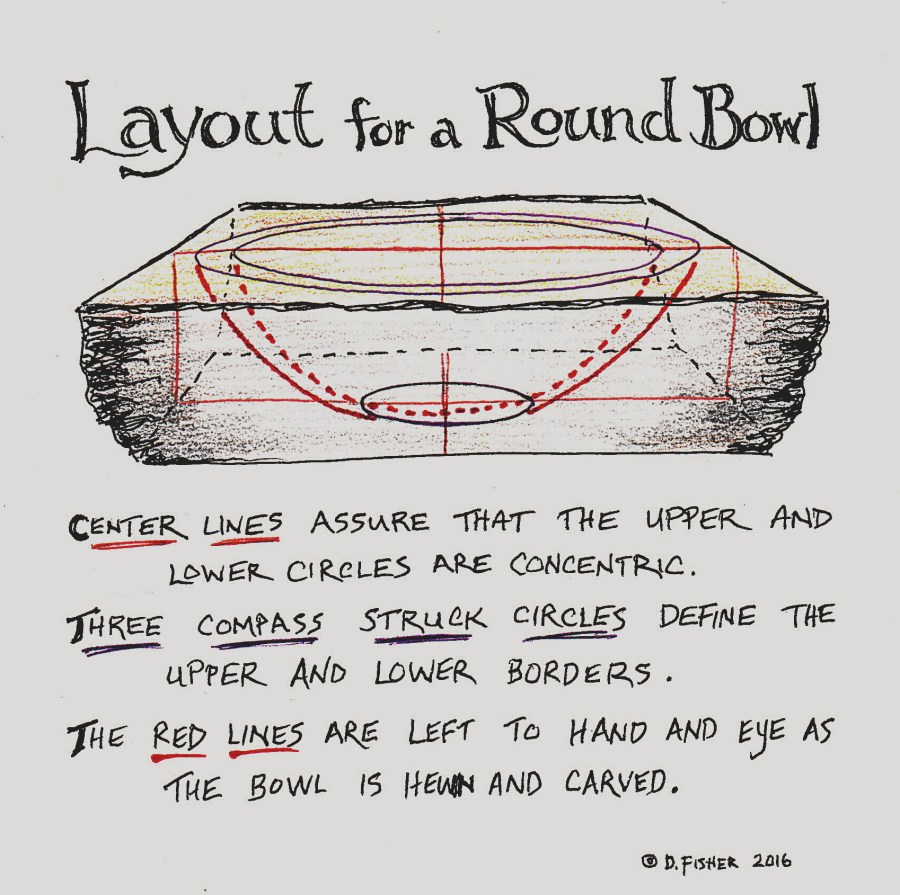 Layout for a Round Bowl
CENTER LINES ASSURE THAT THE UPPER AND
LOWER CIRCLES ARE CONCENTRIC.
THREE COMPASS STRUCK CIRCLES DEFINE THE
UPPER AND LOWER BORDERS.
THE RED LINES ARE LEFT TO HAND AND EYE AS
THE BOWL IS HEWN AND CARVED.
© D. FISHER 2016